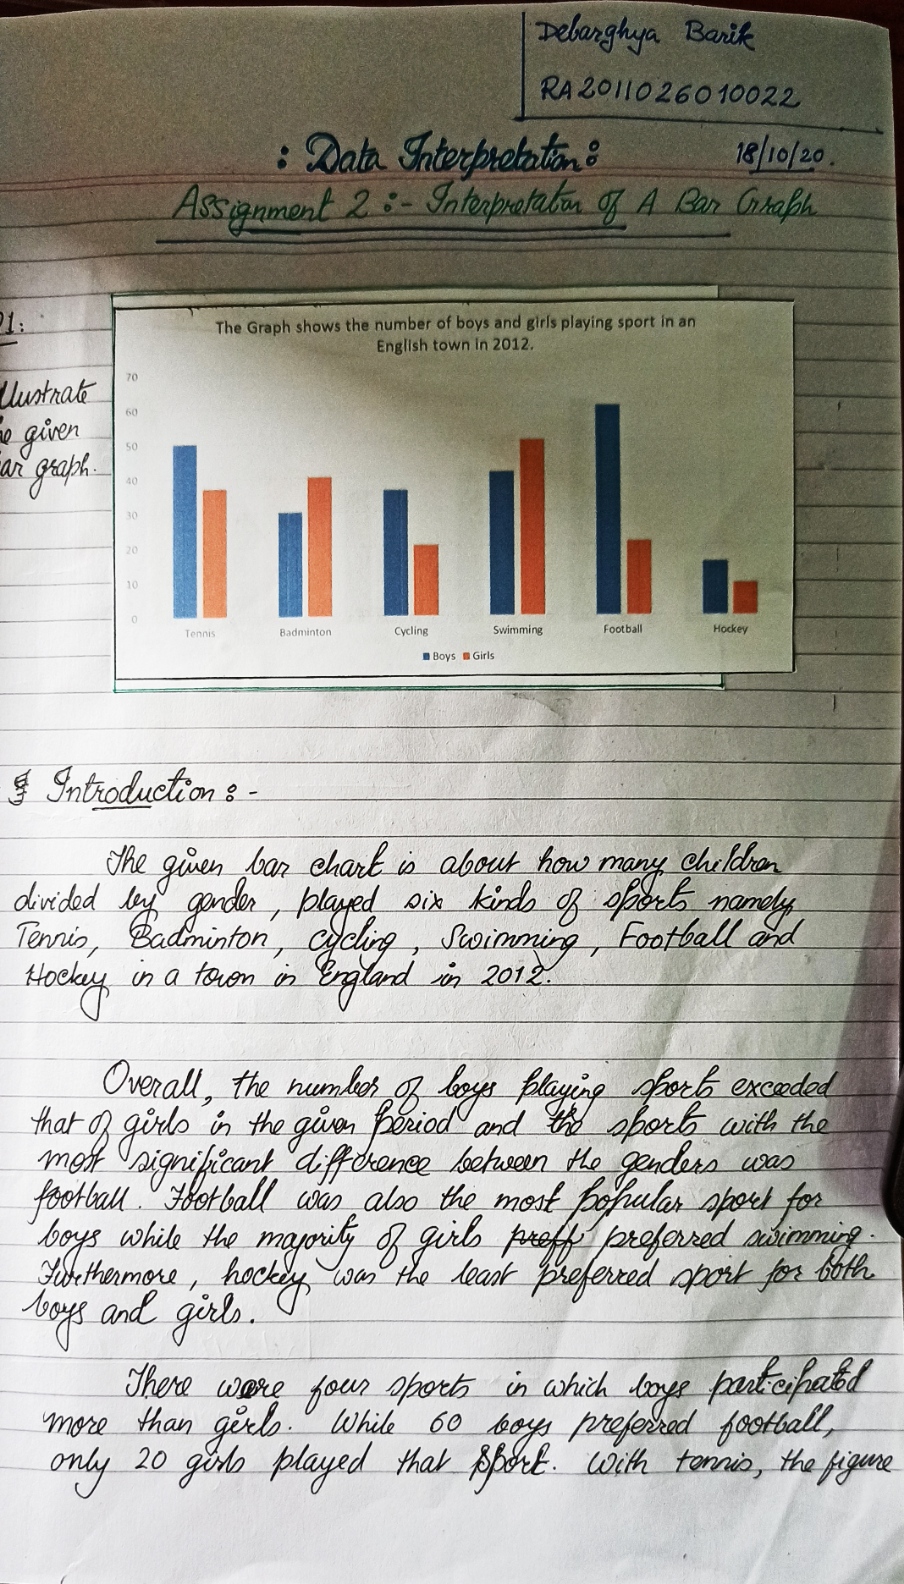 Debarghya Barik
RA2011026010022
: Data Interpretation:
18/10/20.
Assignment 2 :- Interpretation of A Bar Graph
The Graph shows the number of boys and girls playing sport in an
English town in 2012.
70
60
50
40
30
20
10
0
Tennis Badminton Cycling Swimming Football Hockey
Boys Girls
1:
llustrate
given
ar graph.
§ Introduction : -
The given bar chart is about how many children
divided by gender, played six kinds of sports namely
Tennis, Badminton, Cycling, Swimming, Football and
Hockey in a town in England in 2012.
Overall, the number of boys playing sports exceeded
that of girls in the given period and the sports with the
most significant difference between the genders was
football. Football was also the most popular sport for
boys while the majority of girls preff preferred swimming.
Furthermore, hockey was the least preferred sport for both
boys and girls.
There were four sports in which boys participated
more than girls. While 60 boys preferred football,
only 20 girls played that sport. With tennis, the figure